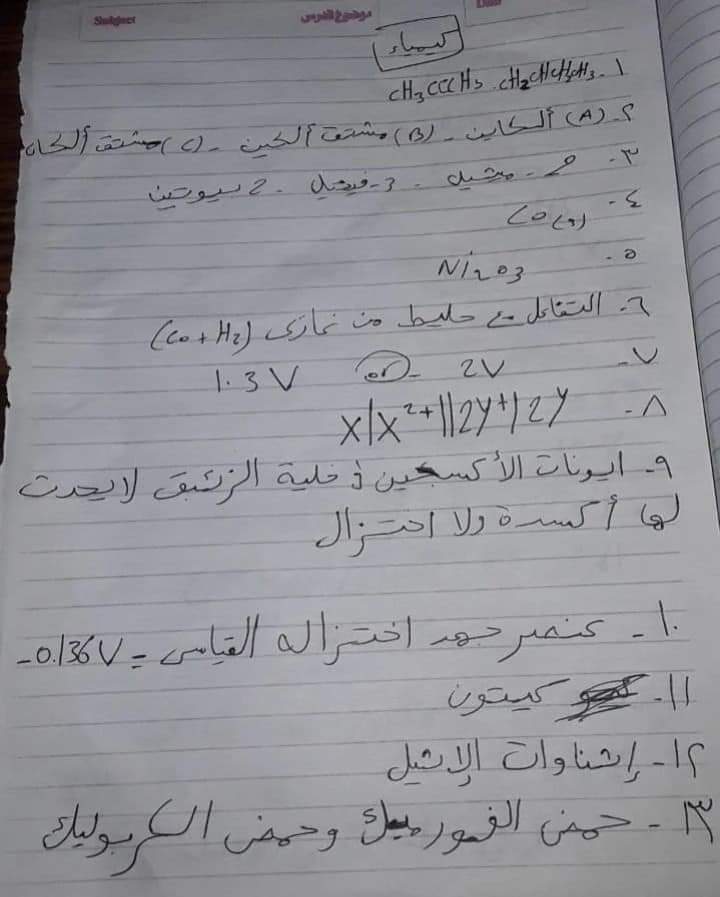 Subject موضوع الدرس Date
كيمياء
١- CH3CCCH3 . CH2CHCH3CH3
٢- (A) ألكاين - (B) مشتق ألكين - (C) مشتق ألكان
٣- 2 - ميثيل - 3 - فينيل - 2 بيوتين
٤- CO(g)
٥- Ni2O3
٦- التفاعل مع خليط من غازى (CO + H2)
٧- 2V or 1.3 V
٨- X|X2+||2Y+|2Y
٩- ايونات الأكسجين في خلية الزئبق لا يحدث
لها أكسدة ولا اختزال
١٠- عنصر جهد اختزاله القياسى = -0.136V
١١- كيتون
١٢- إثناوات الإثيل
١٣- حمض الفورميك وحمض الكربوليك